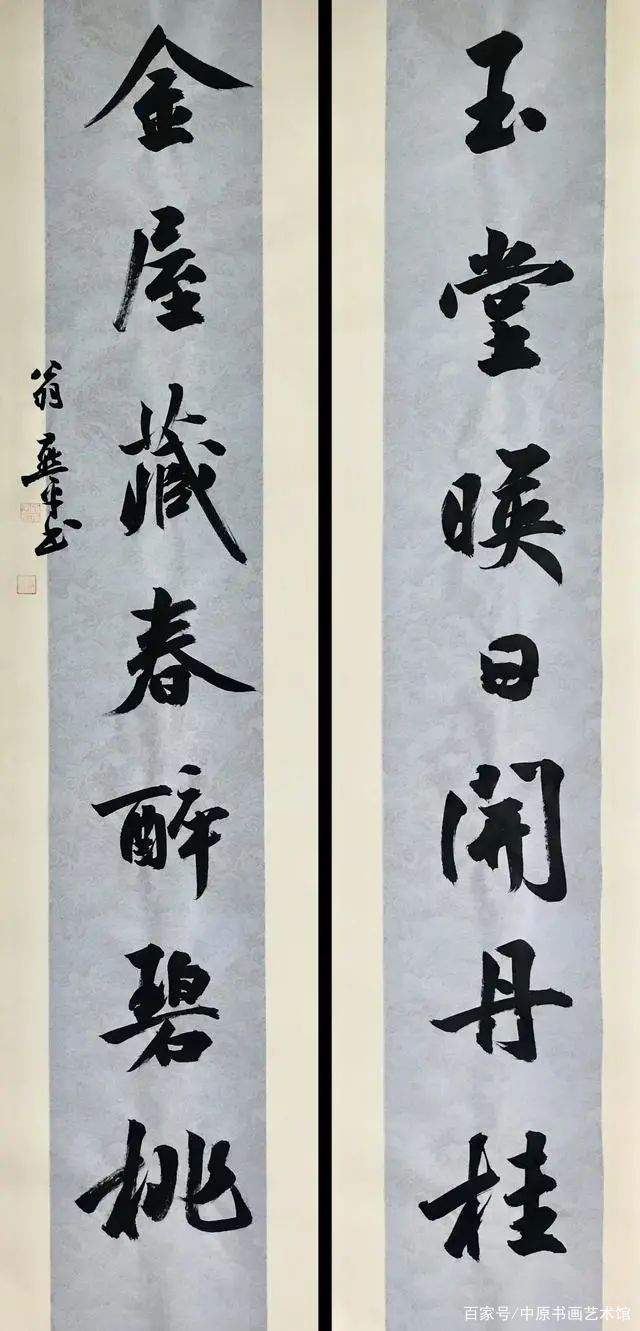 玉堂暎日開丹桂
金屋藏春醉碧桃
翁燕午书
百家号/中原书画艺术馆